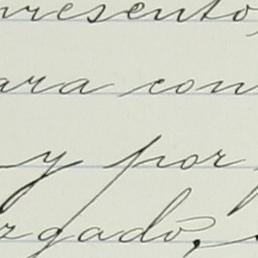 presento,
ara con
y por
zgado,